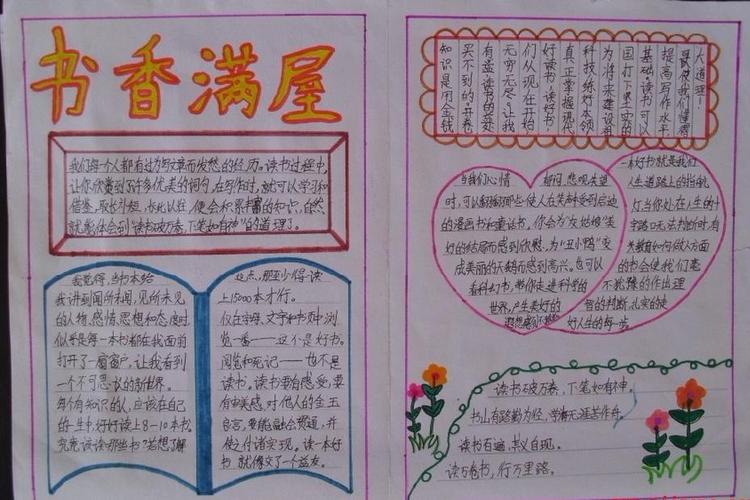 书香满屋
我们每个人都有过为写文章而发愁的经历。读书过程中,
让你欣赏到了许多优美的词句,在写作时,就可以学习和
借鉴,取长补短,长此以往,便会积累丰富的知识,自然
就能体会到"读书破万卷,下笔如有神"的道理了。
我觉得,当书本给
我讲到闻所未闻,见所未见
的人物、感情、思想和态度时
似乎是每一本书都在我面前
打开了一扇窗户,让我看到
一个不可思议的新世界。
每个有知识的人,应该在自己
的一生中,好好读上8-10本书,
究竟该读哪些书?若想了解
这点,那至少得读
上15000本才行。
仅在字母、文字和书页中浏
览一番——这不是好书。
阅览和死记——也不是
读书。读书要的感受,要
有审美感,对他人的金玉
良言,要能融会贯通,并
使之付诸实现。读一本好
书,就像交了一个益友。
知识是用金钱
买不到的。开卷
有益读书的益处
无穷无尽。让我
们从现在开始
好读书,读好书,
真正掌握现代
科技练好本领
为将来建设祖
国打下坚实的
基础。读书可以
提高写作水平
最使我们懂得
大道理!
当我们心情 郁闷、悲观失望
时,可以翻翻那些使人在笑料中受到启迪
的漫画书和童话书。你会为"灰姑娘"美
好的结局而感到欣慰,为"丑小鸭"变
成美丽的天鹅而感到高兴。也可以
看科幻书,带你走进科学的
世界,产生美好的
一本好书就是我们
人生道路上的指航
灯当你处在人生的十
字路口无法判断时,有
关教育如何做人方面
的书会使我们毫
不犹豫的作出理
智的判断,扎实的走
好人生的每一步。
读书破万卷,下笔如有神。
书山有路勤为径,学海无涯苦作舟。
读书百遍,其义自现。
读万卷书,行万里路。